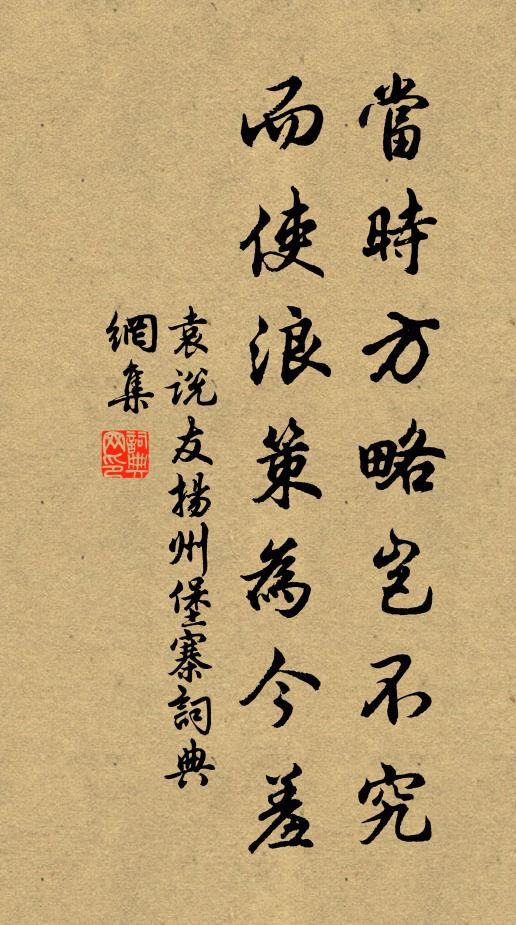 當時方略豈不究
而使浪策為今羞
袁説友揚州堡寨詞典
網集
詞典
网印